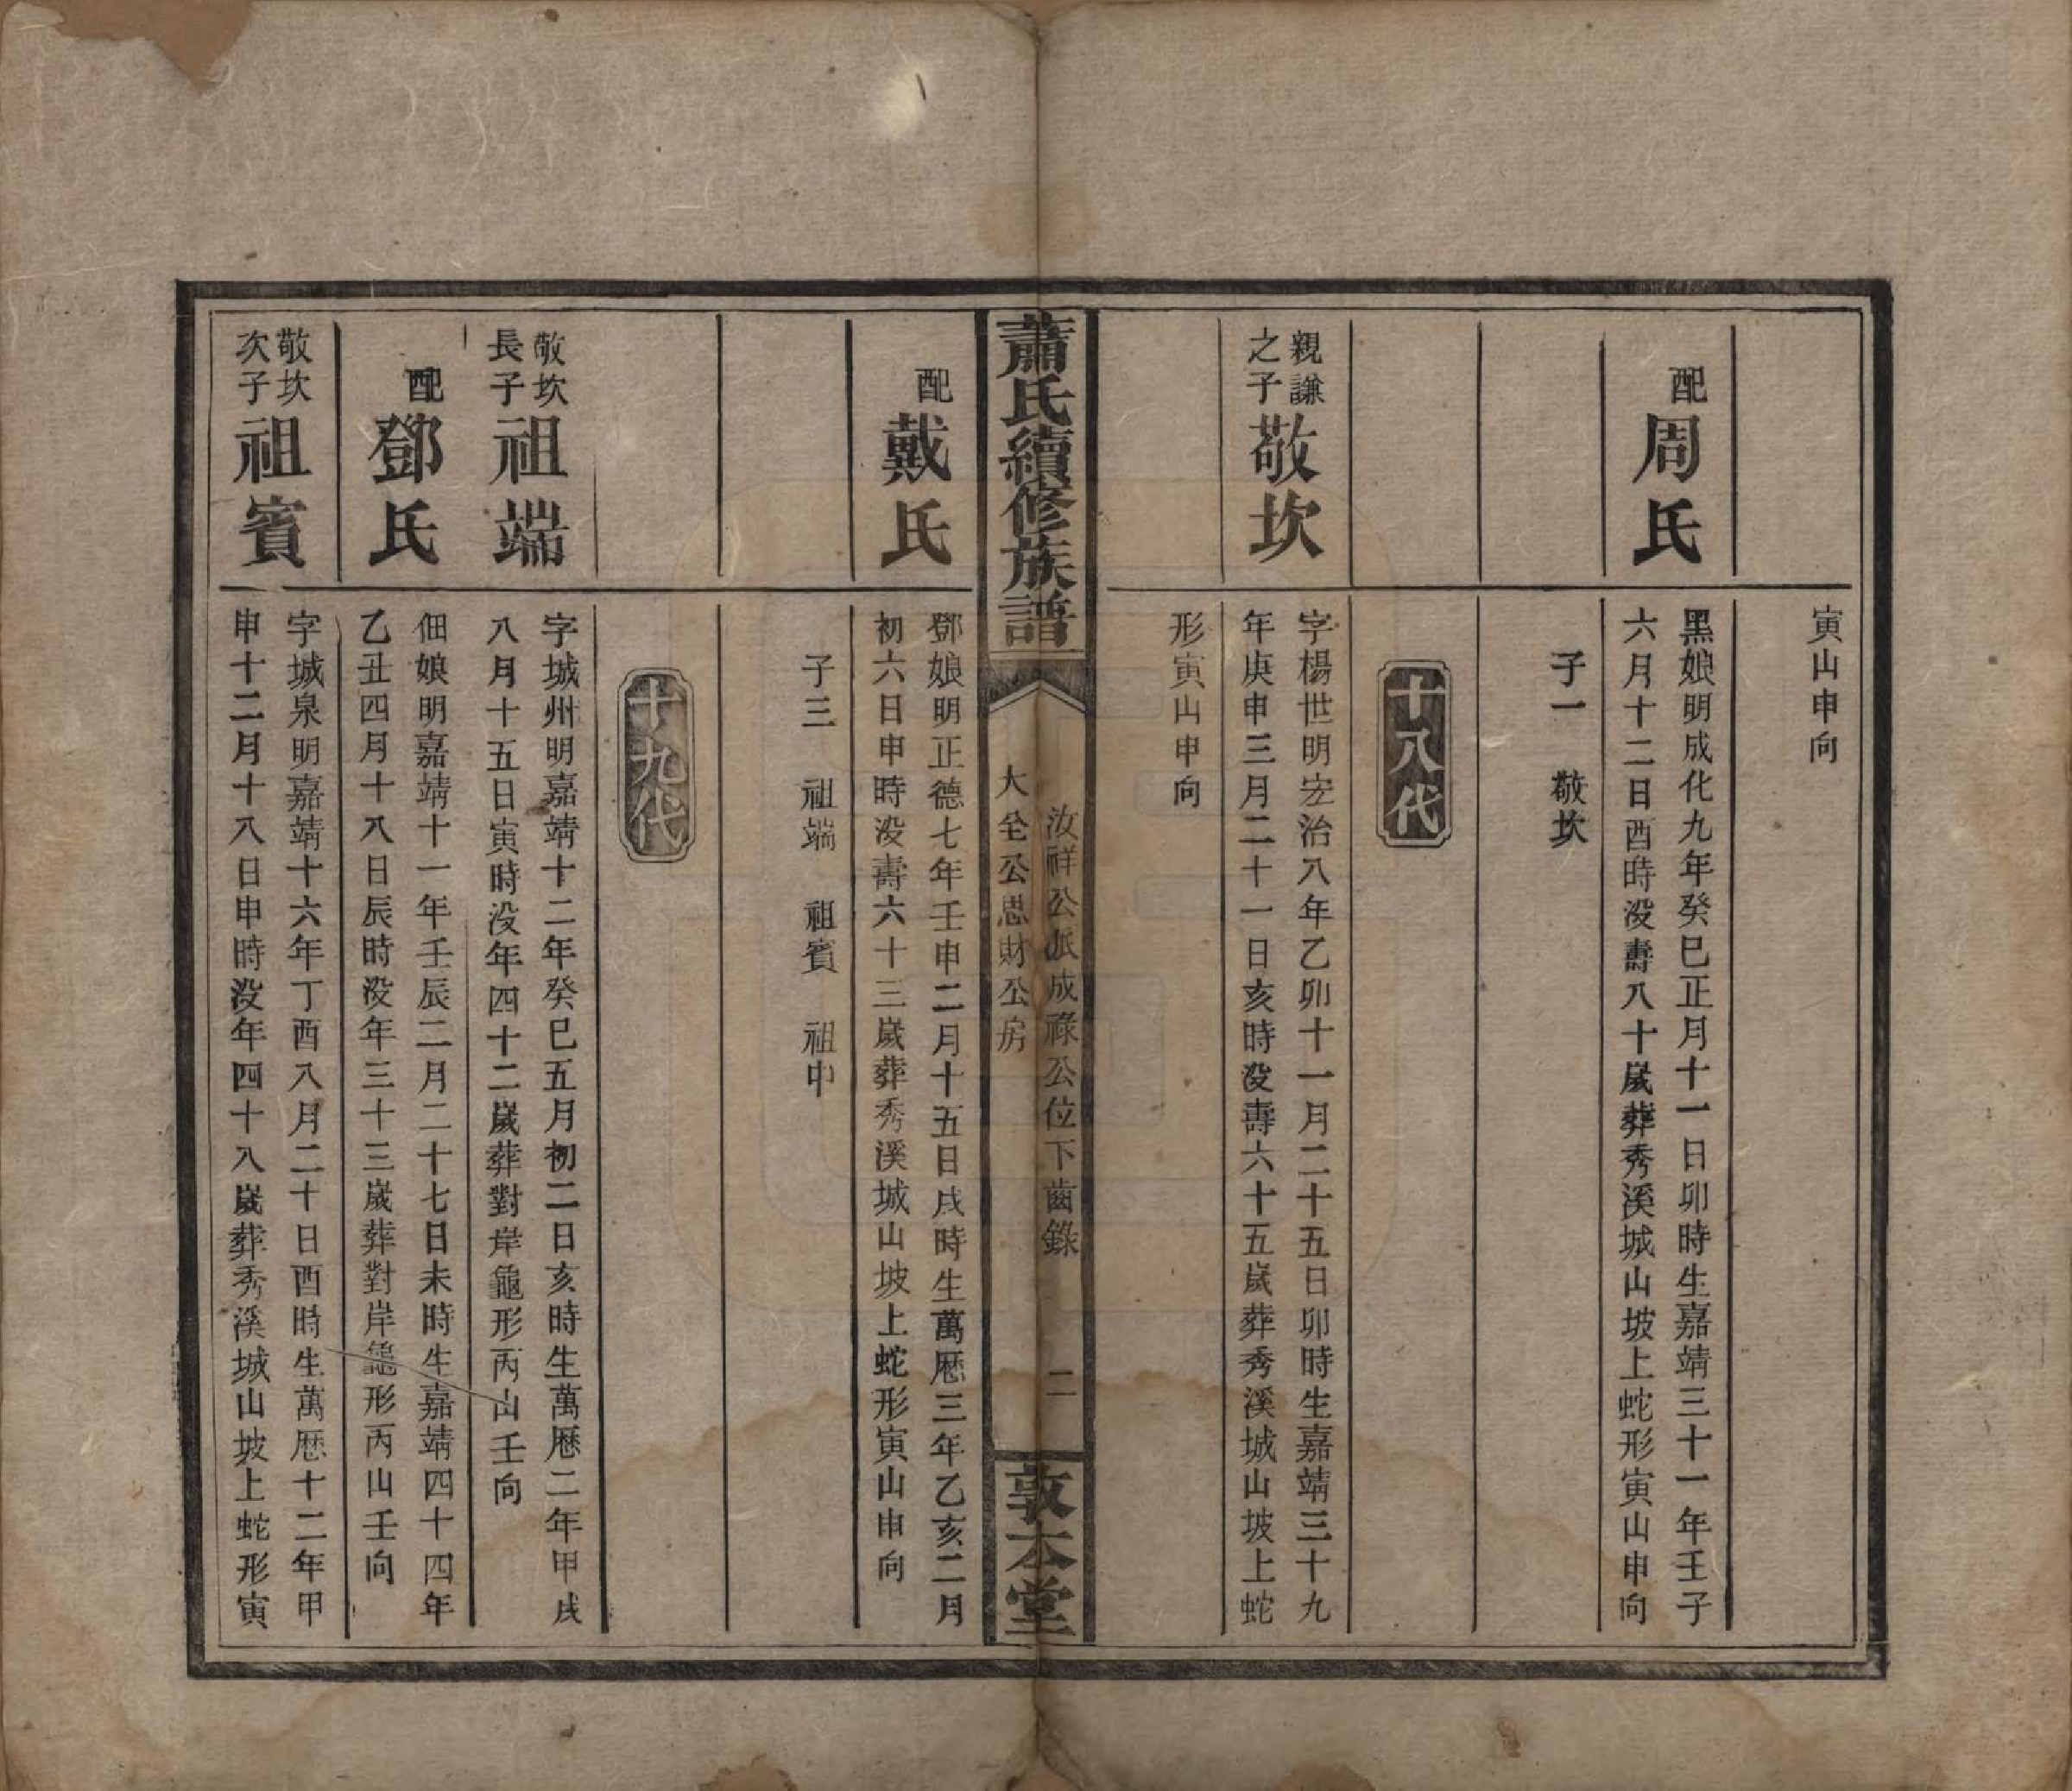 寅山申向
配
周氏
黑娘明成化九年癸巳正月十一日卯時生嘉靖三十一年壬子
六月十二日酉時没壽八十歲葬秀溪城山坡上蛇形寅山申向
子一 敬坎
十八代
親謙
之子
敬坎
字楊世明宏治八年乙卯十一月二十五日卯時生嘉靖三十九
年庚申三月二十一日亥時没壽六十五歲葬秀溪城山坡上蛇
形寅山申向
蕭氏續修族譜
汝祥公派成祿公位下齒錄
大全公思財公房
二
敦本堂
配
戴氏
鄧娘明正德七年壬申二月十五日戌時生萬歷三年乙亥二月
初六日申時没壽六十三歲葬秀溪城山坡上蛇形寅山申向
子三 祖端 祖賓 祖中
十九代
敬坎
長子
祖端
字城州明嘉靖十二年癸巳五月初二日亥時生萬歷二年甲戌
八月十五日寅時没年四十二歲葬對岸龜形丙山壬向
配
鄧氏
佃娘明嘉靖十一年壬辰二月二十七日未時生嘉靖四十四年
乙丑四月十八日辰時没年三十三歲葬對岸龜形丙山壬向
敬坎
次子
祖賓
字城泉明嘉靖十六年丁酉八月二十日酉時生萬歷十二年甲
申十二月十八日申時没年四十八歲葬秀溪城山坡上蛇形寅